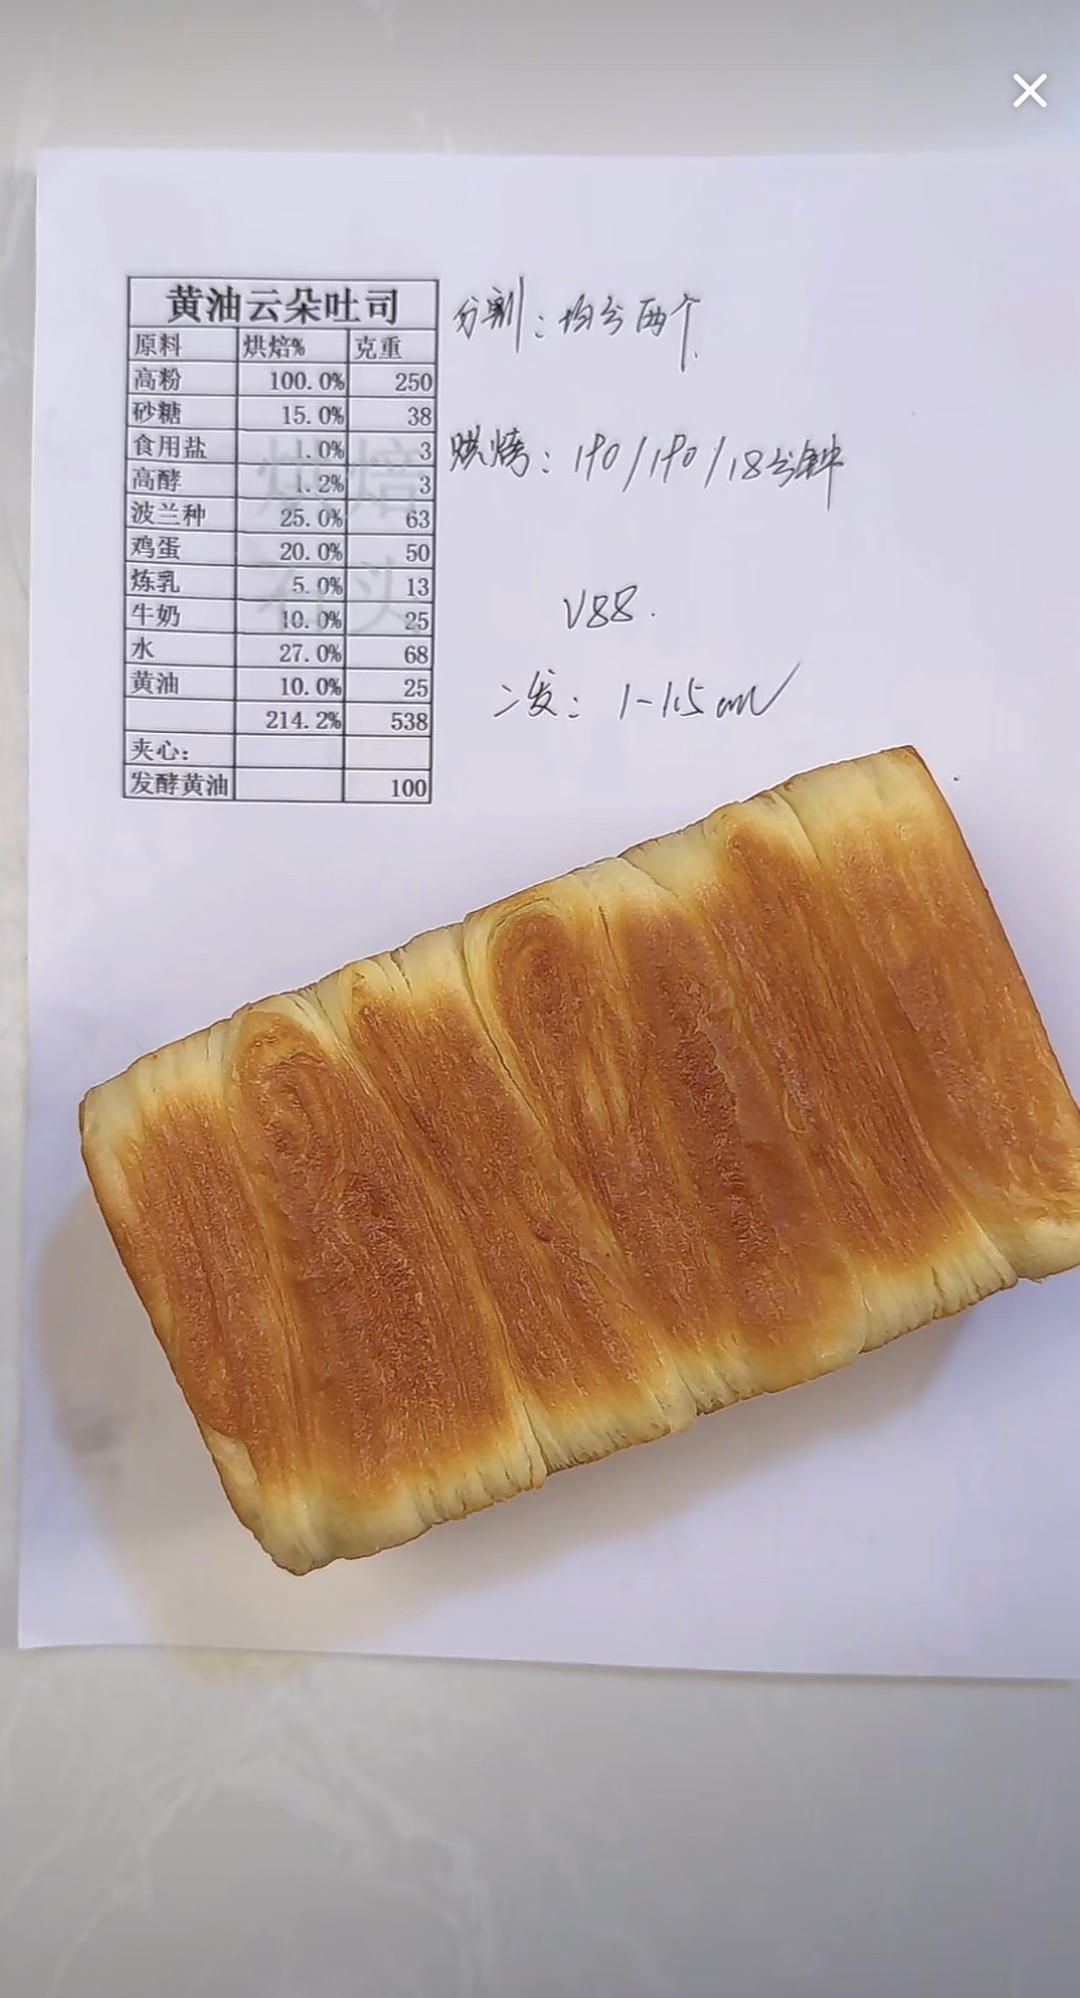 黄油云朵吐司
原料 烘焙% 克重
高粉 100.0% 250
砂糖 15.0% 38
食用盐 1.0% 3
高酵 1.2% 3
波兰种 25.0% 63
鸡蛋 20.0% 50
炼乳 5.0% 13
牛奶 10.0% 25
水 27.0% 68
黄油 10.0% 25
214.2% 538
夹心：
发酵黄油 100
分割：均分两个.
烘烤：190/190/18分钟
V88.
二发：1-1.5cm
烘焙
石头